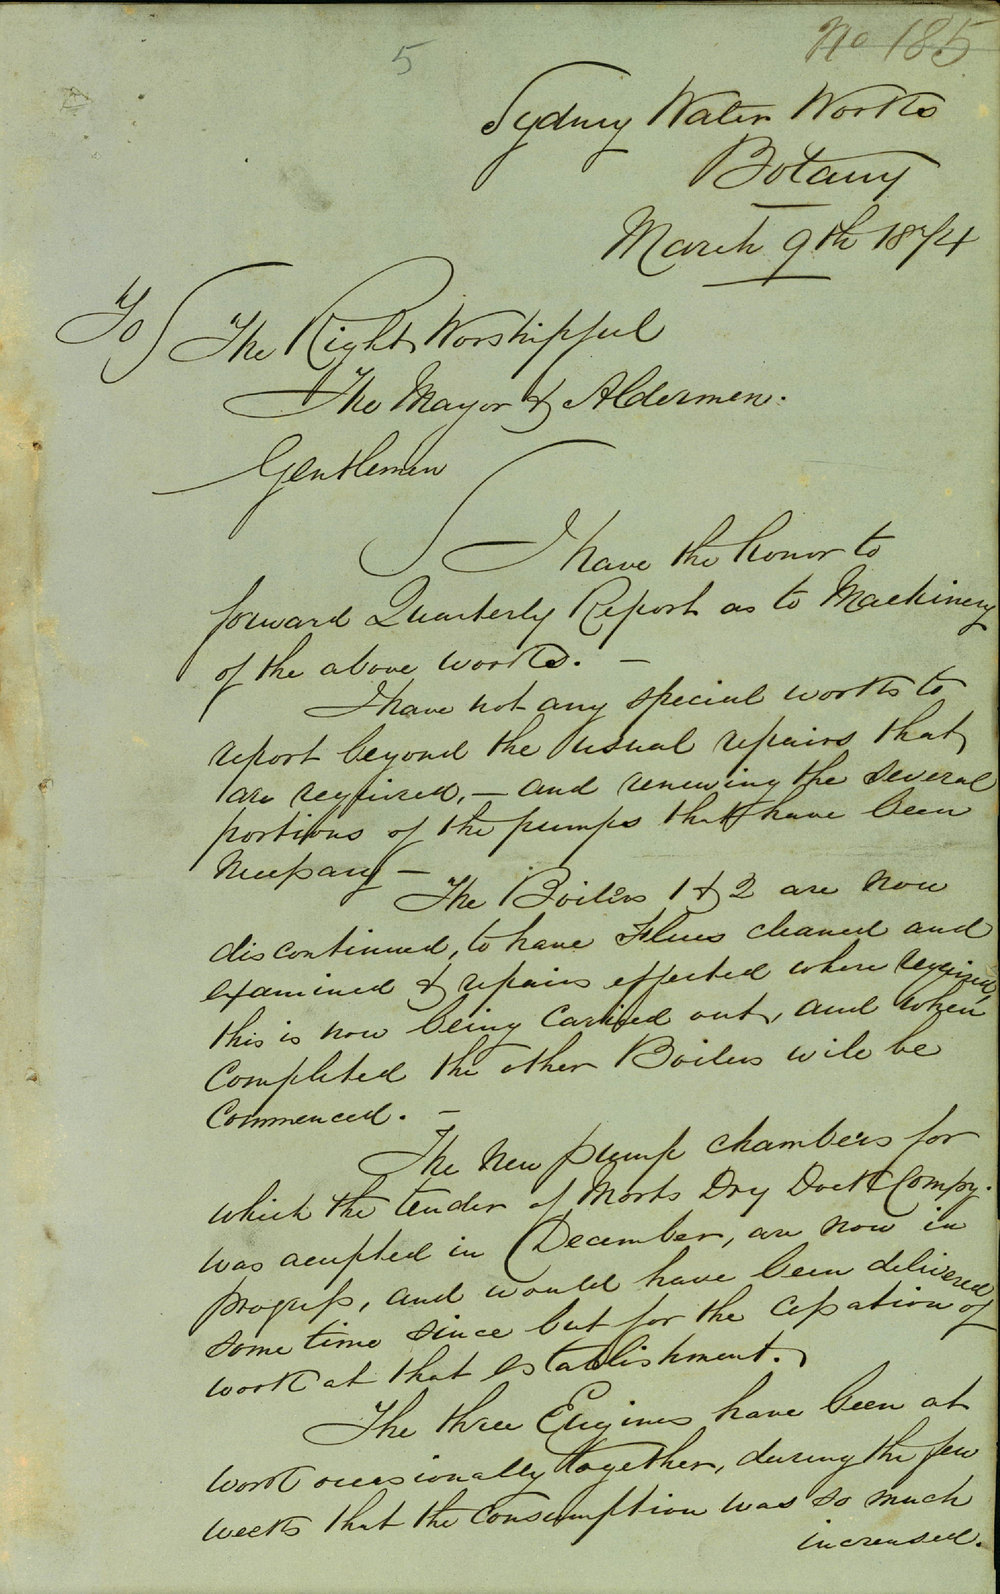 No 185
5
Sydney Water Works
Botany
March 9th 1874
To The Right Worshipful
The Mayor & Aldermen.
Gentlemen
I have the honor to
forward Quarterly Report as to Machinery
of the above works. —
I have not any special works to
report beyond the usual repairs that
are required, — and renewing the several
portions of the pumps that have been
necessary —
The Boilers 1 & 2 are now
discontinued, to have Flues cleaned and
examined & repairs effected where required,
this is now being carried out, and when
completed the other Boilers will be
commenced. —
The new pump chambers for
which the tender of Morts Dry Dock Compy.
was accepted in December, are now in
progress, and would have been delivered
some time since but for the cessation of
work at that establishment.
The three Engines have been at
work occasionally together, during the few
weeks that the consumption was so much
increased.